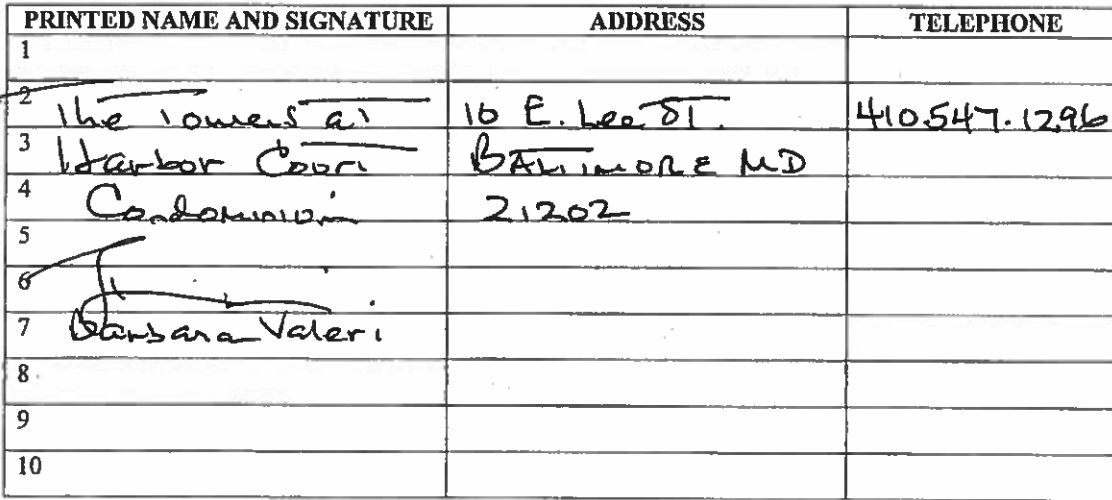 PRINTED NAME AND SIGNATURE ADDRESS TELEPHONE
1
2 The Towers at 10 E. Lee ST. 410.547.1296
3 Harbor Court BALTIMORE MD
4 Condominium 21202
5
6
7 Barbara Valeri
8
9
10